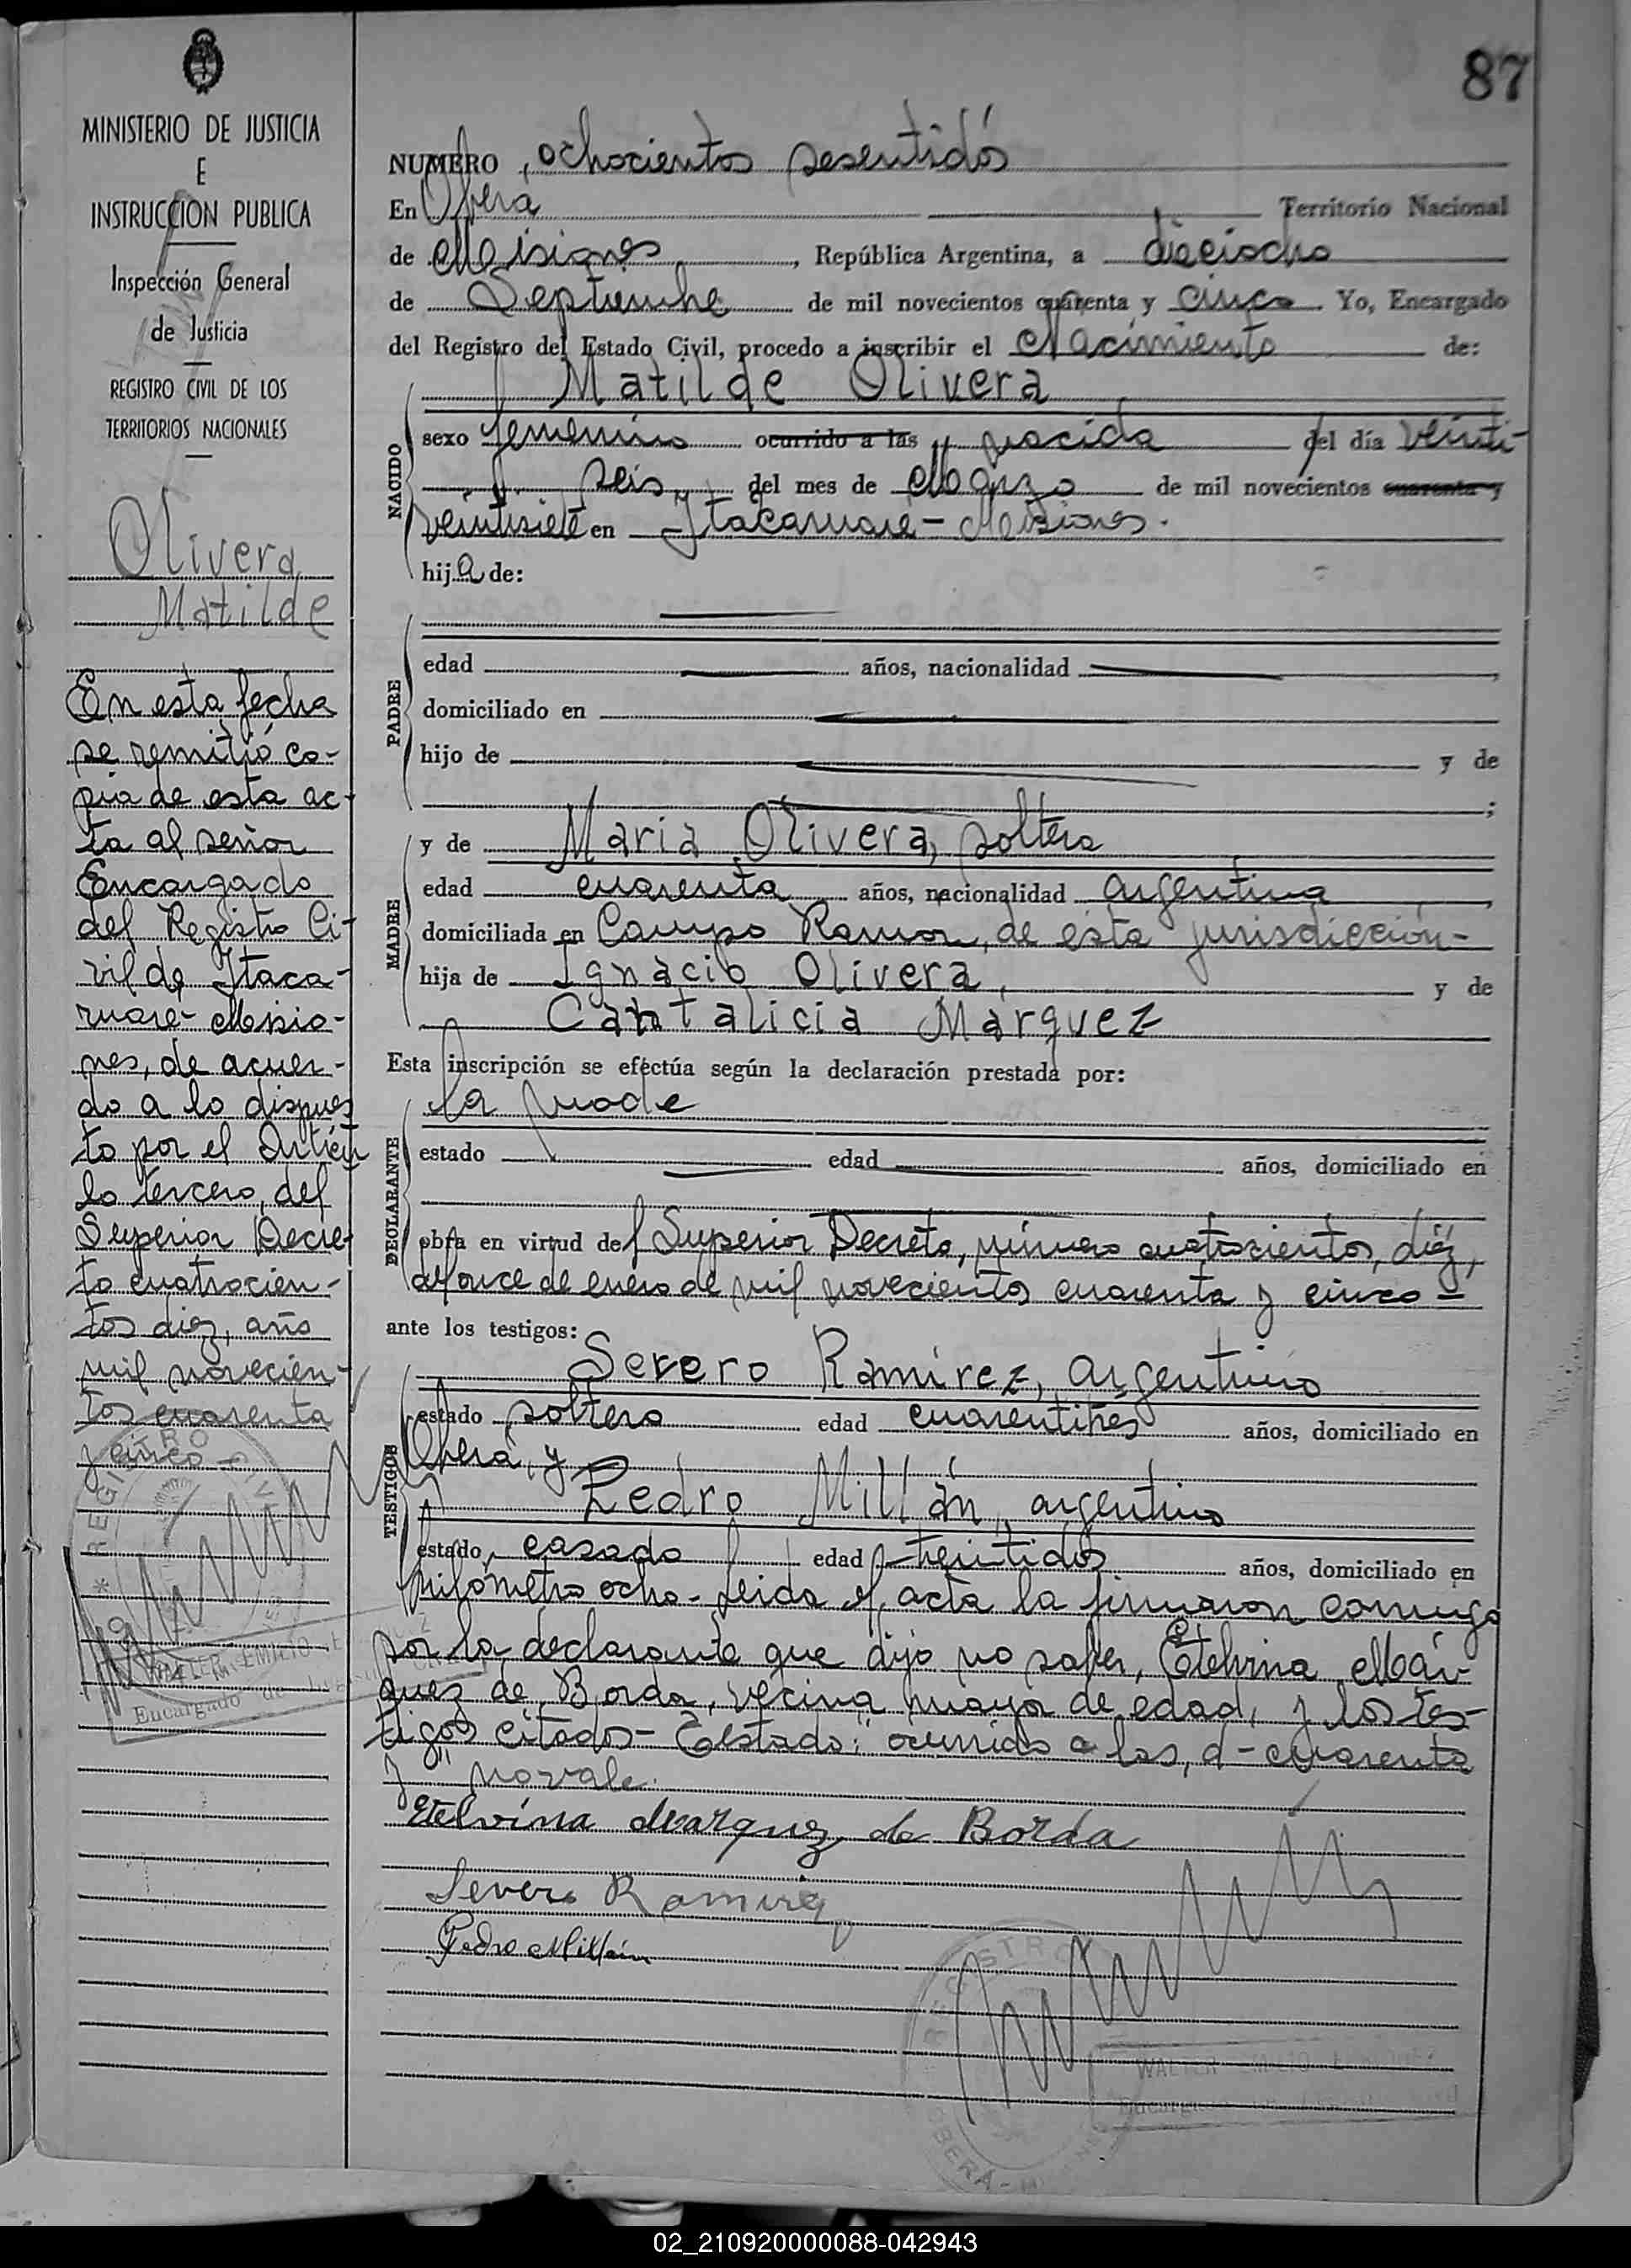 87
MINISTERIO DE JUSTICIA
E
INSTRUCCION PUBLICA
Inspección General
de Justicia
REGISTRO CIVIL DE LOS
TERRITORIOS NACIONALES
Olivera
Matilde
En esta fecha
se remitió co-
pia de esta ac-
ta al señor
Encargado
del Registro Ci-
vil de Itaca-
ruaré - Misio-
nes, de acuer-
do a lo dispues
to por el artícu
lo tercero, del
Superior Decre-
to cuatrocien-
tos diez, año
mil novecien-
tos cuarenta
y cinco -
REGISTRO CIVIL
WALTER EMILIO
Encargado de
NUMERO ochocientos sesentidós
En Oberá Territorio Nacional
de Misiones, República Argentina, a dieciocho
de Septiembre de mil novecientos cuarenta y cinco. Yo, Encargado
del Registro del Estado Civil, procedo a inscribir el Nacimiento de:
Matilde Olivera
NACIDO
sexo femenino ocurrido a las nacida del día veinti-
seis, del mes de Marzo de mil novecientos cuarenta y
veintisiete en Itacaruaré - Misiones.
hija de:
PADRE
edad años, nacionalidad ,
domiciliado en
hijo de y de
;
MADRE
y de Maria Olivera, soltera
edad cuarenta años, nacionalidad argentina,
domiciliada en Campo Ramon, de esta jurisdicción-
hija de Ignacio Olivera, y de
Cantalicia Márquez
Esta inscripción se efectúa según la declaración prestada por:
DECLARANTE
la madre
estado edad años, domiciliado en
obra en virtud del Superior Decreto, número cuatrocientos, diez,
del once de enero de mil novecientos cuarenta y cinco -
ante los testigos:
TESTIGOS
Severo Ramírez, argentino
estado soltero edad cuarentitres años, domiciliado en
Oberá, y
Pedro Millán, argentino
estado, casado edad treintidós años, domiciliado en
kilómetro ocho - Leida el acta la firmaron conmigo
por la declarante que dijo no saber, Etelvina Már-
quez de Borda, vecina mayor de edad, y los tes-
tigos citados - Testado: "ocurrido a las, d - cuarenta
y" no vale.
Etelvina Marquez de Borda
Severo Ramirez
Pedro Millán
REGISTRO
OBERÁ -
WALTER EMILIO
Encargado
02_210920000088-042943